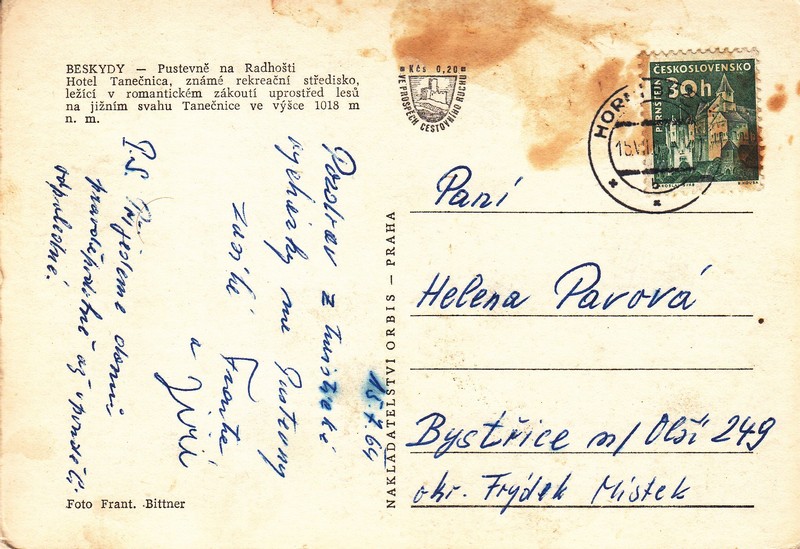 BESKYDY — Pustevně na Radhošti
Hotel Tanečnica, známé rekreační středisko,
ležící v romantickém zákoutí uprostřed lesů
na jižním svahu Tanečnice ve výšce 1018 m
n. m.
Kčs 0,20
VE PROSPĚCH CESTOVNÍHO RUCHU
ČESKOSLOVENSKO
30h
PERNŠTEJN
HOR
15.VII
b
15.7.64
Pozdrav z turistické
vycházky na Pustevny
Zasílá Franta
a Jiří
P.S. Přijedeme domů
pravděpodobně až v pondělí
odpoledne.
Foto Frant. Bittner
NAKLADATELSTVÍ ORBIS — PRAHA
Paní
Helena Pavová
Bystřice n/Olší 249
okr. Frýdek Místek